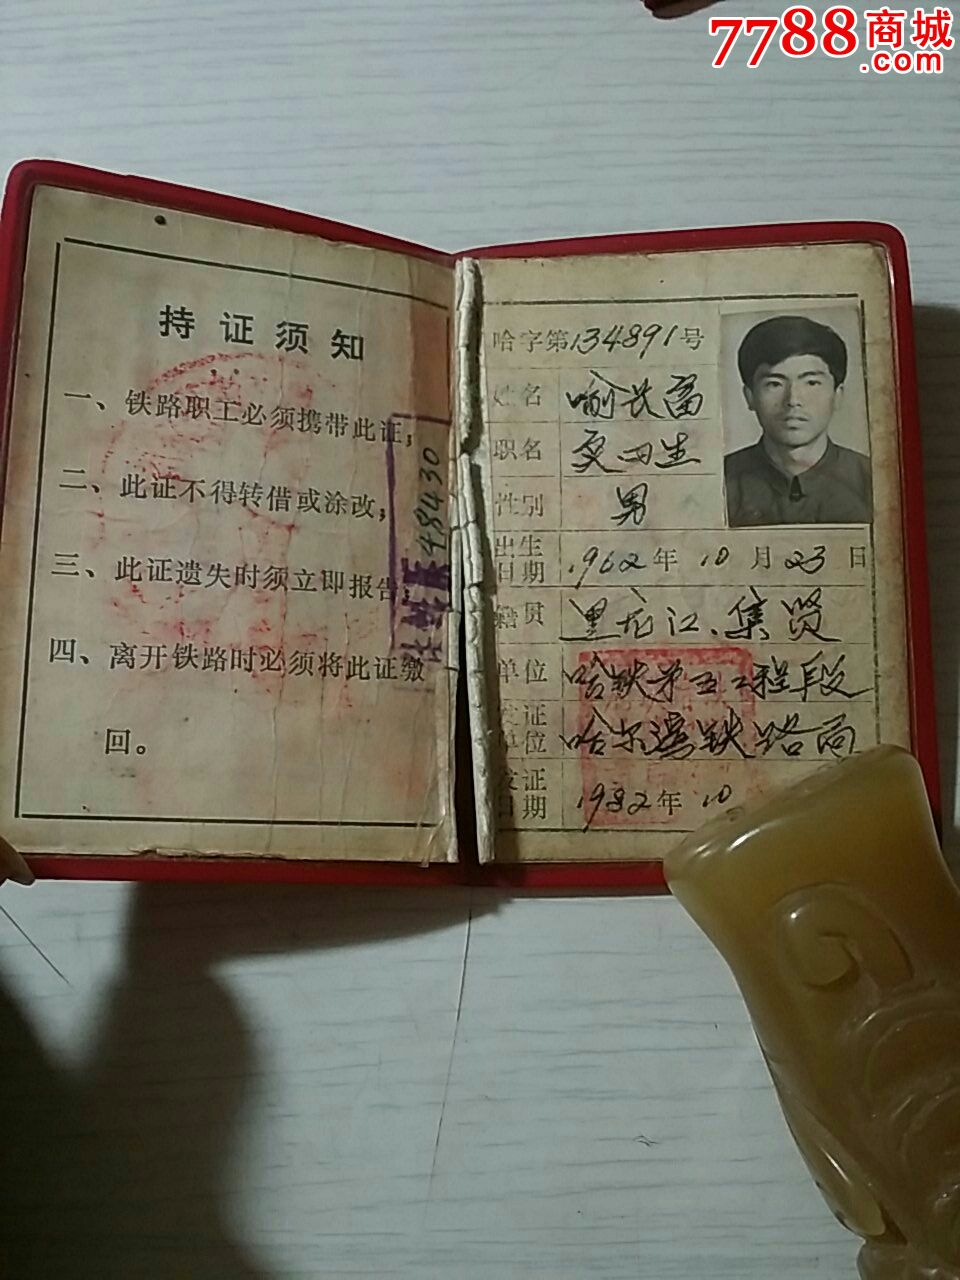 7788商城
.com
持证须知
一、铁路职工必须携带此证；
二、此证不得转借或涂改；
三、此证遗失时须立即报告
四、离开铁路时必须将此证缴
回。
484430
哈字第134891号
姓名 喻长富
职名
性别 男
出生日期 1962年10月23日
籍贯 黑龙江、集贤
单位 哈铁第五工程段
发证单位 哈尔滨铁路局
发证日期 1982年10